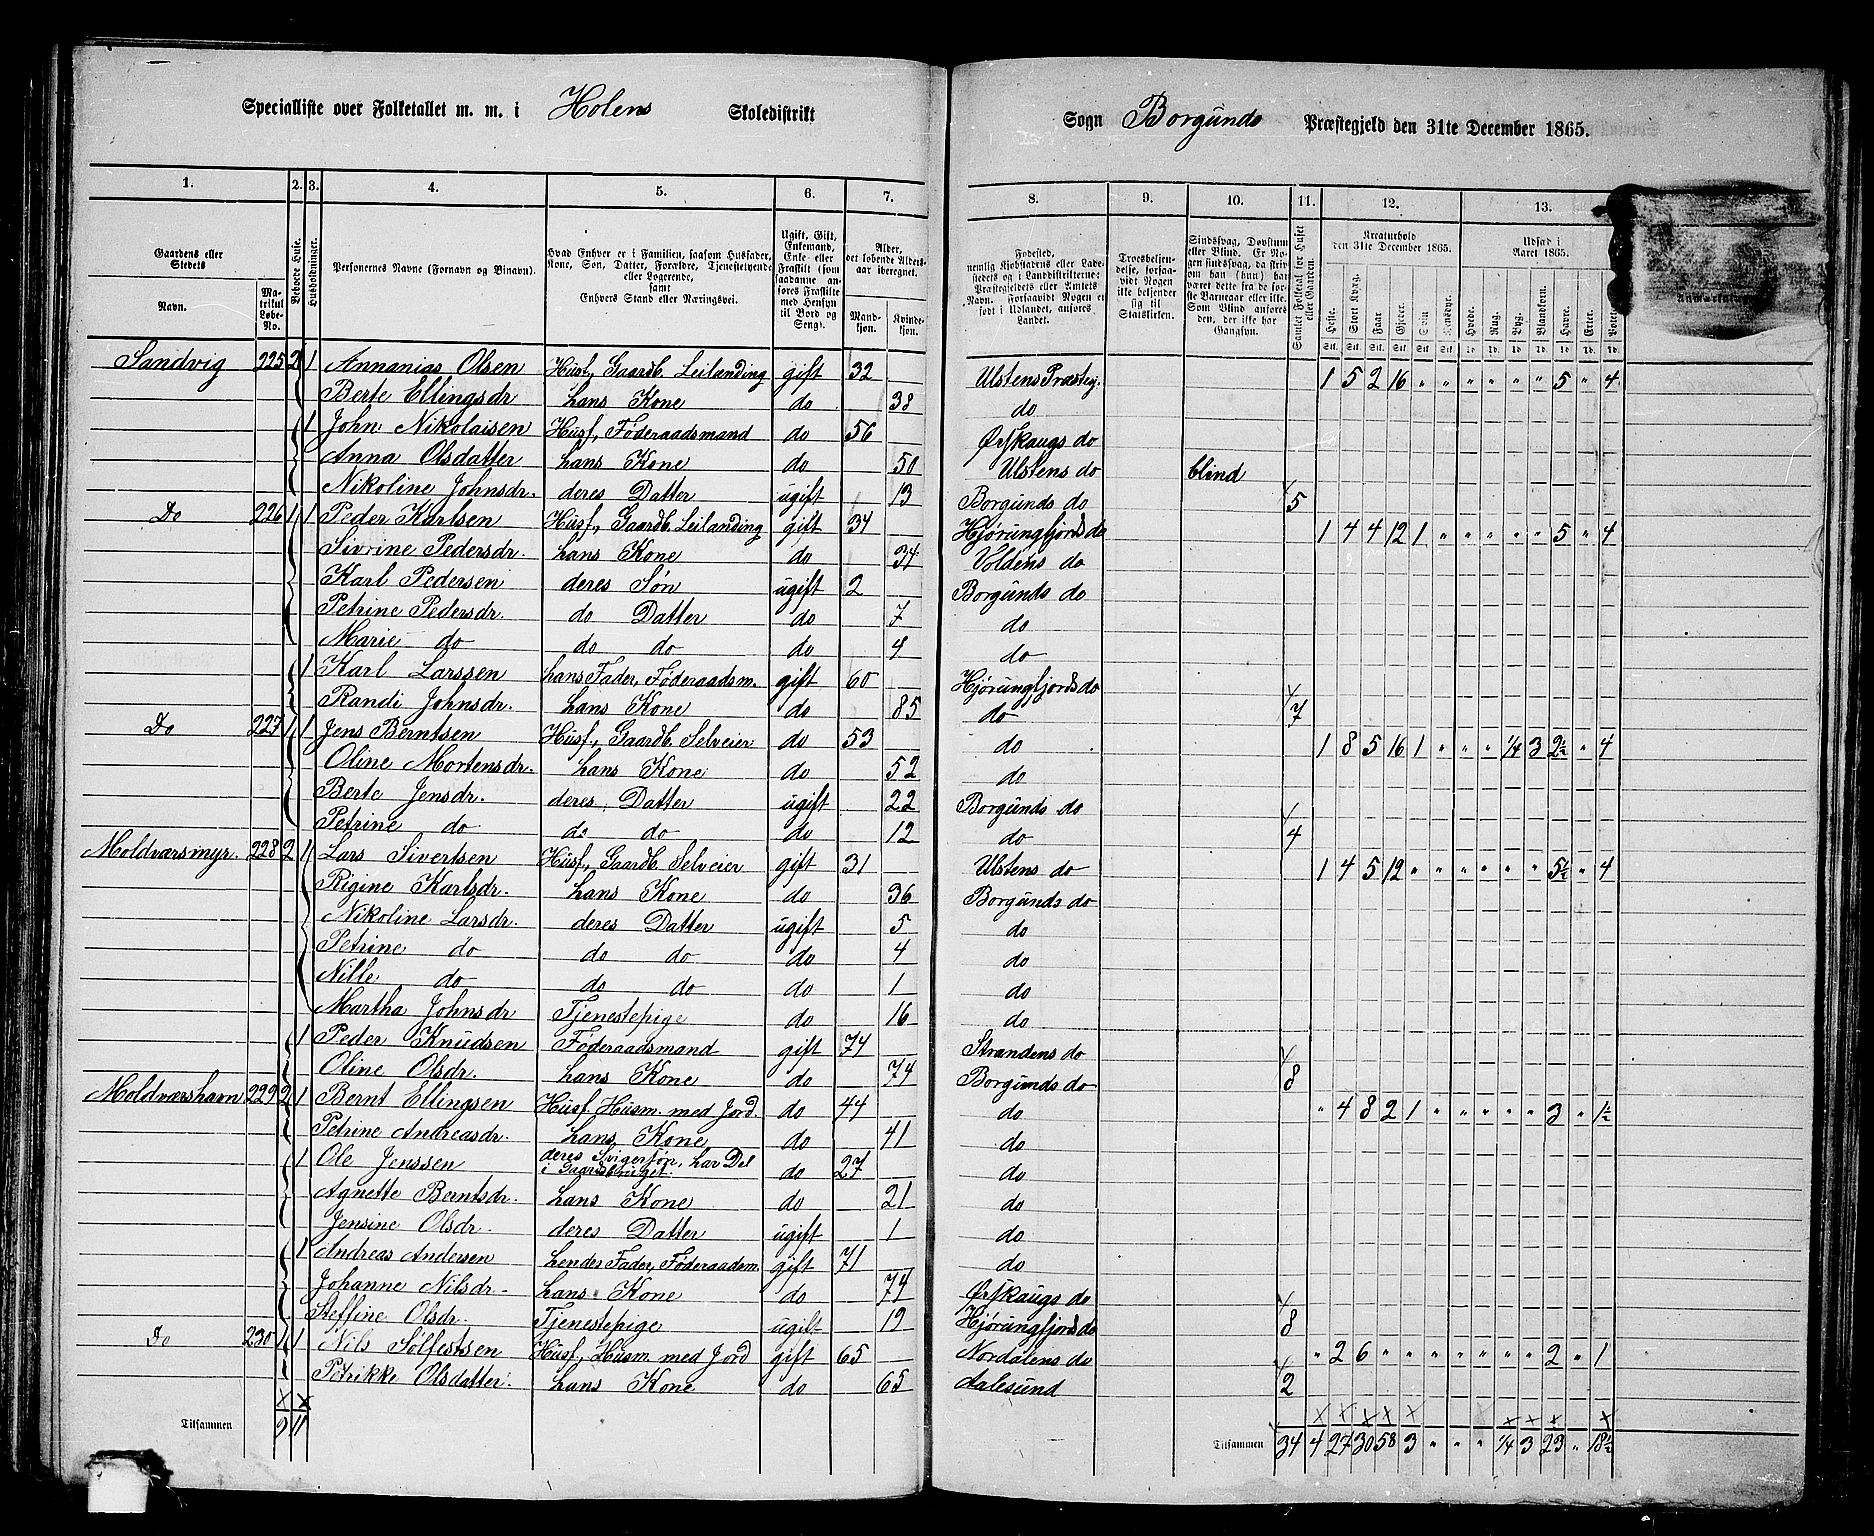 Specialliste over Folketallet m. m. i Holens Skoledistrikt Sogn Borgunds Præstegjeld den 31te December 1865.
1. 2. 3. 4. 5. 6. 7. 8. 9. 10. 11. 12. 13.
Gaardens eller Stedets
Navn. Matrikul Løbe-No.
Beboede Huse.
Husholdninger.
Personernes Navne (Fornavn og Binavn).
Hvad Enhver er i Familien, saasom Husfader, Kone, Søn, Datter, Forældre, Tjenestetyende eller Logerende, samt Enhvers Stand eller Næringsvei.
Ugift, Gift, Enkemand, Enke eller Fraskilt (som saadanne anføres Fraskilte med Hensyn til Bord og Seng).
Alder, det løbende Aldersaar iberegnet.
Mandkjøn. Kvindekjøn.
Fødested, nemlig Kjøbstadens eller Ladestedets og i Landdistrikterne: Præstegjeldets eller Amtets Navn. Forsaavidt Nogen er født i Udlandet, anføres Landet.
Troesbekjendelse, forsaavidt Nogen ikke bekjender sig til Statskirken.
Sindssvag, Døvstum eller Blind. Er Nogen sindssvag, da skriv om han (hun) har været dette fra de første Barneaar eller ikke. Som Blind anføres den, der ikke har Gangsyn.
Samlet Folketal for Huset eller Gaarden.
Kreaturhold den 31te December 1865.
Heste. Stort Kvæg. Faar. Gjeder. Svin. Rensdyr.
Udsæd i Aaret 1865.
Hvede. Rug. Byg. Blandkorn. Havre. Erter. Poteter.
Anmærkninger
Sandvig 225 2 1 Annanias Olsen Husf, Gaardb. Leilanding gift 32 Ulstens Præstegj. 1 5 2 16 " " " " " " 5 " 4
Berte Ellingsdr hans Kone do 38 do
1 John Nikolaisen Husf, Føderaadsmand do 56 Ørskaugs do
Anna Olsdatter hans Kone do 50 Ulstens do blind
Nikoline Johnsdr. deres Datter ugift 13 Borgunds do 5
Do 226 1 1 Peder Karlsen Husf, Gaardb. Leilanding gift 34 Hjørungfjords do 1 4 4 12 1 " " " " " 5 " 4
Sivrine Pedersdr. hans Kone do 34 Voldens do
Karl Pedersen deres Søn ugift 2 Borgunds do
Petrine Pedersdr. do Datter do 7 do
Marie do do do do 4 do
1 Karl Larssen hans Fader, Føderaadsm. gift 60 Hjørungfjords do
Randi Johnsdr. hans Kone do 85 do 7
Do 227 1 1 Jens Berntsen Husf, Gaardb. Selveier do 53 do 1 8 5 16 1 " " " 1/4 3 2½ " 4
Oline Mortensdr. hans Kone do 52 do
Berte Jensdr. deres Datter ugift 22 Borgunds do
Petrine do do do do 12 do 4
Moldværsmyr. 228 2 1 Lars Sivertsen Husf, Gaardb. Selveier gift 31 Ulstens do 1 4 5 12 " " " " " " 5½ " 4
Rigine Karlsdr. hans Kone do 36 Borgunds do
Nikoline Larsdr. deres Datter ugift 5 do
Petrine do do do do 4 do
Nille do do do do 1 do
Martha Johnsdr Tjenestepige do 16 do
1 Peder Knudsen Føderaadsmand gift 74 Strandens do
Oline Olsdr. hans Kone do 74 Borgunds do 8
Moldværshavn 229 2 1 Bernt Ellingsen Husf, Husm. med Jord. do 44 do " 4 8 2 1 " " " " " 3 " 1½
Petrine Andreasdr. hans Kone do 41 do
1 Ole Jenssen deres Svigersøn, har Del i Gaardsbruget. do 27 do
Agnette Berntsdr. hans Kone do 21 do
Jensine Olsdr. deres Datter ugift 1 do
1 Andreas Andersen hendes Fader, Føderaadsm. gift 71 do
Johanne Nilsdr. hans Kone do 74 Ørskaugs do
Steffine Olsdr. Tjenestepige ugift 19 Hjørungfjords do 8
Do 230 1 1 Nils Solfestsen Husf, Husm. med Jord gift 65 Nordalens do " 2 6 " " " " " " " 2 " 1
Petrikke Olsdatter. hans Kone do 65 Aalesund 2
Tilsammen 9 11 Tilsammen 34 4 27 30 58 3 " " " 1/4 3 23 " 18½